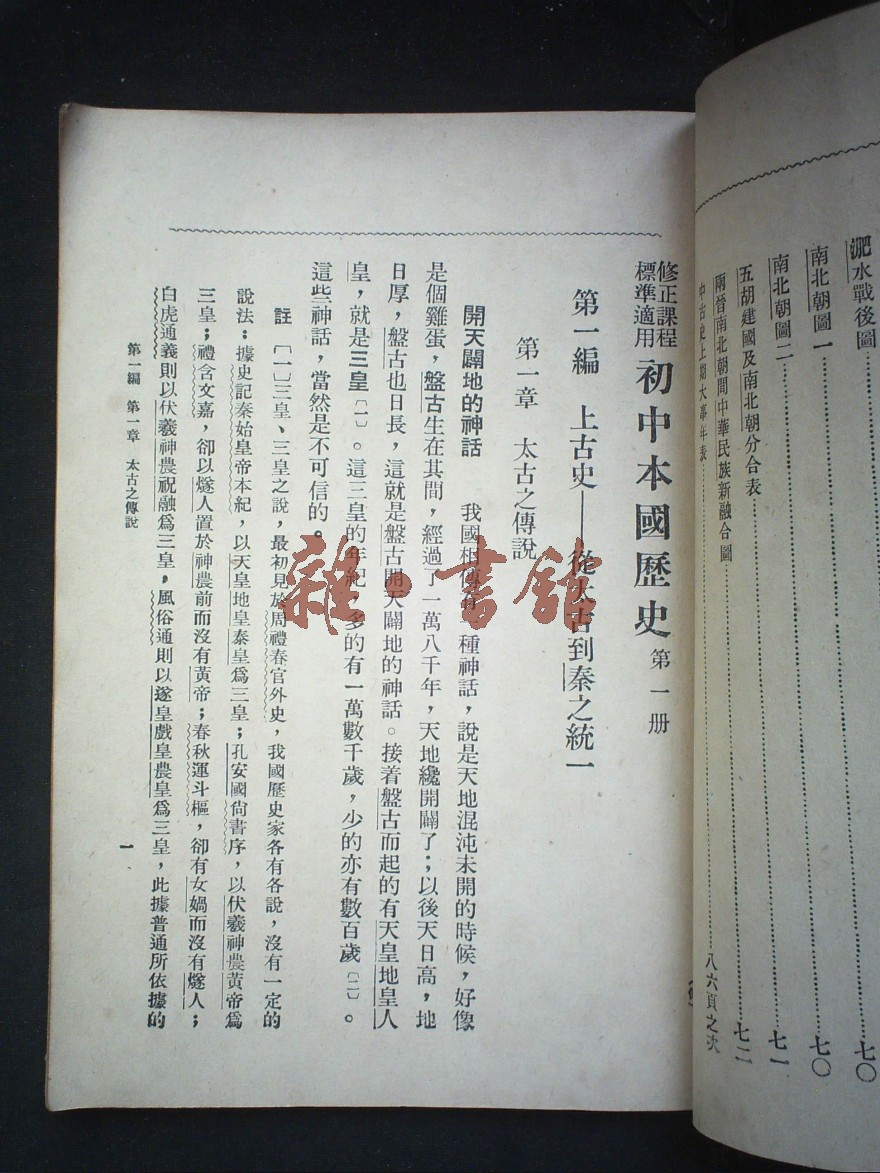 淝水戰後圖……七〇
南北朝圖一……七〇
南北朝圖二……七一
五胡建國及南北朝分合表……七二
兩晉南北朝間中華民族新融合圖
中古史上期大事年表……八六頁之次
修正課程
標準適用
初中本國歷史 第一册
第一編 上古史——從太古到秦之統一
第一章 太古之傳說
開天闢地的神話 我國相傳有一種神話,說是天地混沌未開的時候,好像
是個雞蛋,盤古生在其間,經過了一萬八千年,天地纔開闢了;以後天日高,地
日厚,盤古也日長,這就是盤古開天闢地的神話。接着盤古而起的有天皇地皇人
皇,就是三皇〔一〕。這三皇的年紀,多的有一萬數千歲,少的亦有數百歲〔二〕。
這些神話,當然是不可信的。
註 〔一〕三皇、三皇之說,最初見於周禮春官外史,我國歷史家各有各說,沒有一定的
說法;據史記秦始皇帝本紀,以天皇地皇泰皇爲三皇;孔安國尙書序,以伏羲神農黃帝爲
三皇;禮含文嘉,卻以燧人置於神農前而沒有黃帝;春秋運斗樞,卻有女媧而沒有燧人;
白虎通義則以伏羲神農祝融爲三皇,風俗通則以遂皇戲皇農皇爲三皇,此據普通所依據的
第一編 第一章 太古之傳說
一
雜·書館